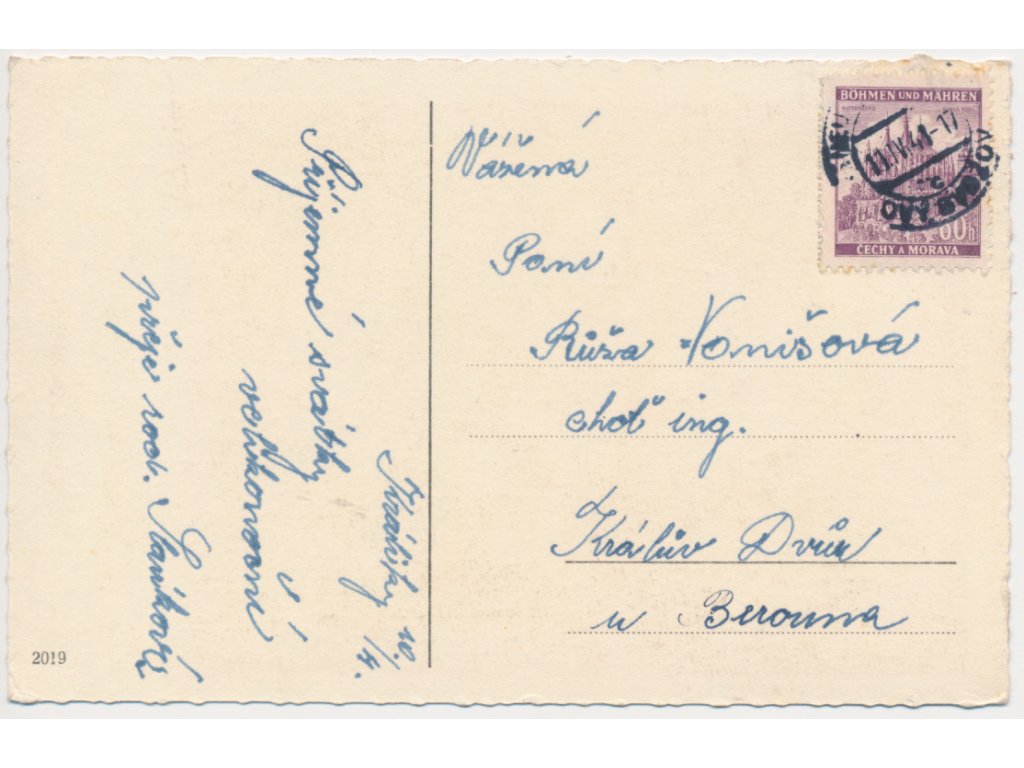 Králíky 10./4.
Příjemné svátky
velikonoční
přeje rod. Slaníková
Vážená
Paní
Růža Vonišová
choť ing.
Králův Dvůr
u Berouna
BÖHMEN UND MÄHREN
11.IV.41-17
60h
ČECHY A MORAVA
2019